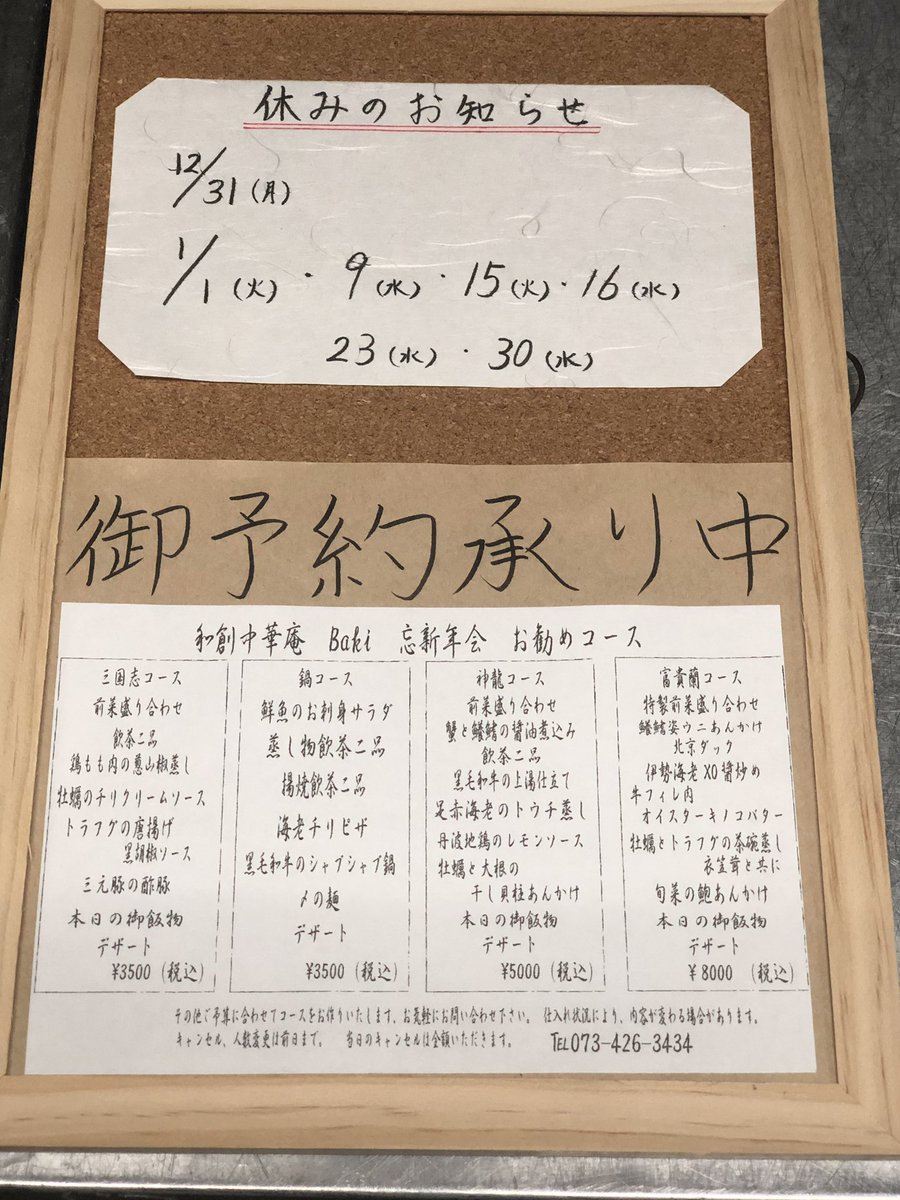 休みのお知らせ
12/31(月)
1/1(火)・9(水)・15(火)・16(水)
23(水)・30(水)
御予約承り中
和創中華庵 Baki 忘新年会 お勧めコース
三国志コース
前菜盛り合わせ
飲茶二品
鶏もも肉の葱山椒蒸し
牡蠣のチリクリームソース
トラフグの唐揚げ
黒胡椒ソース
三元豚の酢豚
本日の御飯物
デザート
¥3500(税込)
鍋コース
鮮魚のお刺身サラダ
蒸し物飲茶二品
揚焼飲茶二品
海老チリピザ
黒毛和牛のシャブシャブ鍋
〆の麺
デザート
¥3500(税込)
神龍コース
前菜盛り合わせ
蟹と鱶鰭の醤油煮込み
飲茶二品
黒毛和牛の上湯仕立て
足赤海老のトウチ蒸し
丹波地鶏のレモンソース
牡蠣と大根の
干し貝柱あんかけ
本日の御飯物
デザート
¥5000(税込)
富貴蘭コース
特製前菜盛り合わせ
鱶鰭姿ウニあんかけ
北京ダック
伊勢海老XO醤炒め
牛フィレ肉
オイスターキノコバター
牡蠣とトラフグの茶碗蒸し
衣笠茸と共に
旬菜の鮑あんかけ
本日の御飯物
デザート
¥8000(税込)
その他ご予算に合わせてコースをお作りいたします、お気軽にお問い合わせ下さい。 仕入れ状況により、内容が変わる場合があります。
キャンセル、人数変更は前日まで。 当日のキャンセルは全額いただきます。 TEL073-426-3434